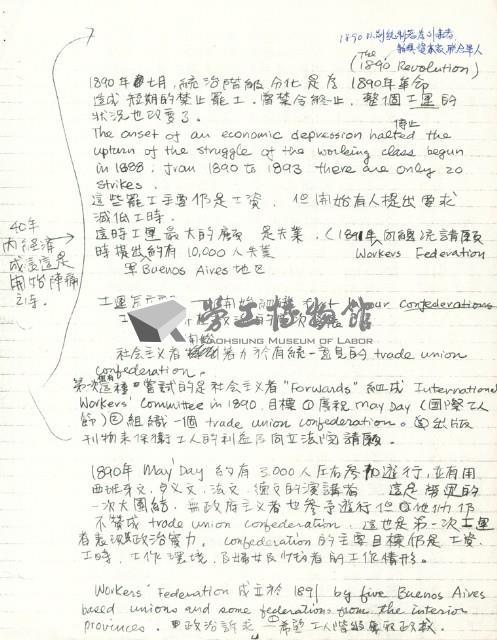 (The 1890 Revolution)
1890年 七月，統治階級分化是在 1890年革命
造成短期的禁止罷工，當禁令終止，整個工運的
狀況也改變了。
The onset of an economic depression halted the 停止
upturn of the struggle of the working class begun
in 1888. from 1890 to 1893 there are only 20
strikes.
這些罷工主要仍是工資，但開始有人提出要求
減低工時。
這時工運最大的 是失業，(1891年 向總統請願
時提出約有 10,000 人失業 Workers Federation
Buenos Aires 地區
40年
內經濟
成長這是
開始陣痛
勞工博物館
KAOHSIUNG MUSEUM OF LABOR
工運 開始組織 labour confederations
社會主義者 努力於有統一意見的 trade union
confederation。
第一次 這種嘗試的是社會主義者 "Forwards" 組成 International
Workers' Committee in 1890. 目標 ① 慶祝 May Day (國際工人
節) ② 組織一個 trade union confederation。 ③ 出版
刊物來保衛工人的利益 ④ 向立法 請願。
1890年 May Day 約有 3,000 人左右參加遊行，並有用
西班牙文，義文，法文，德文的演講者 這是
一次大團結，無政府主義者也參予遊行但他們
不贊成 trade union confederation，這也是第一次工運
者表現其政治實力。 confederation 的主要目標仍是工資，
工時，工作環境，及婦女及少年者的工作情形。
Workers' Federation 成立於 1891 by five Buenos Aires
based unions and some federations from the interior
provinces. 政治訴求 希望工人階級